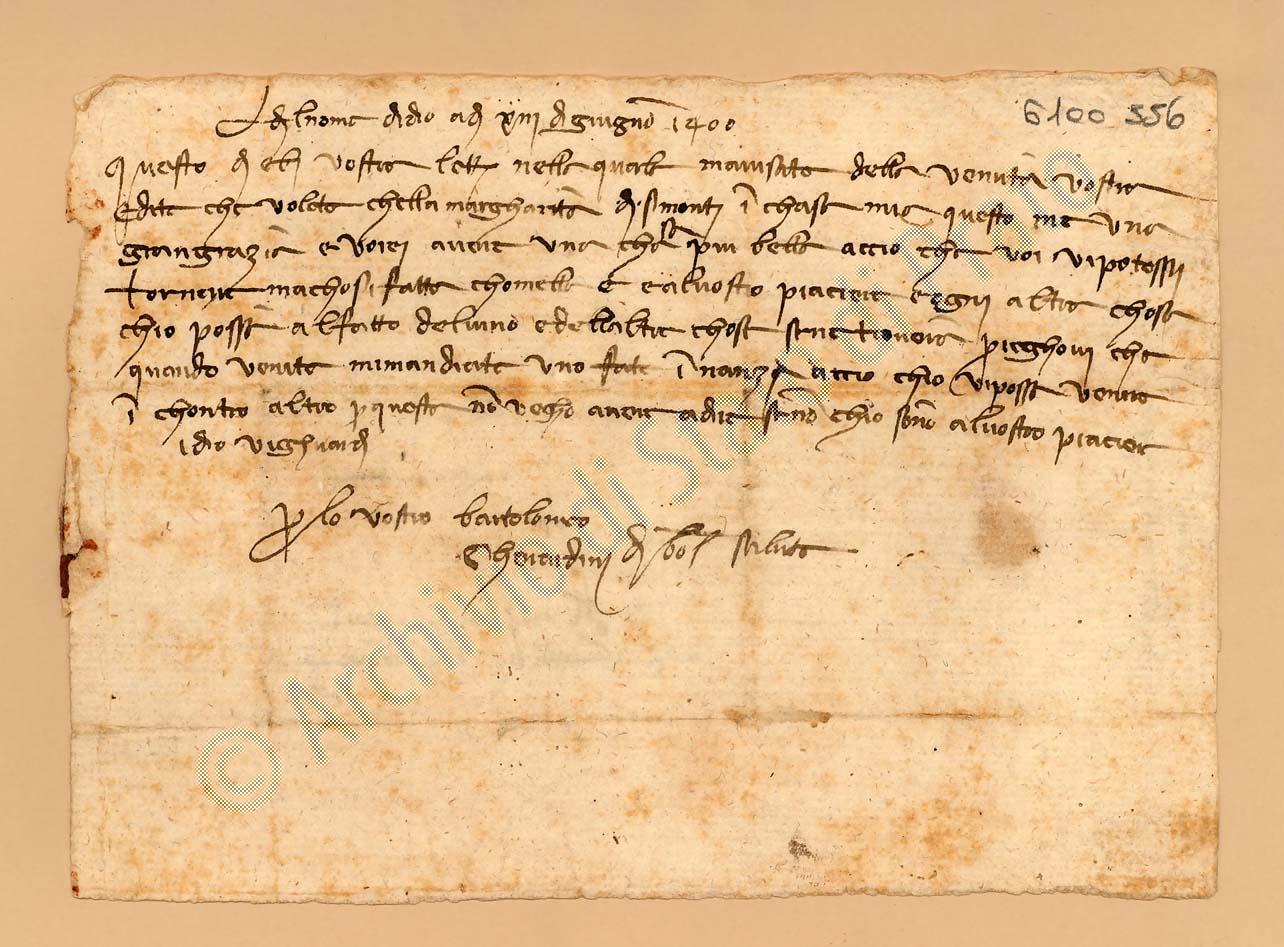 Al nome di dio adì xiii di giugno 1400
6100 556
questo dì ebi vostra letera nella quale mavisate della venuta vostra
e dite che volete chella margharita dismonti in chasa mia questo me una
gran grazia e vorei avere una chasa più bella acciò che voi vi potessi
tornare ma chosì fatta chomella è è al vostro piaciere e ogni altra chosa
chio possa al fatto del vino e dellaltre chose sene troverà prieghovi che
quando venite mi mandiate uno fate inanzi acciò chio vi possa venire
in chontro altro per questa non vegho avere a dire se none chio sono al vostro piacier
idio vi ghuardi
per lo vostro bartolomeo
Gherardini di bol salute
© Archivio di Stato di Prato